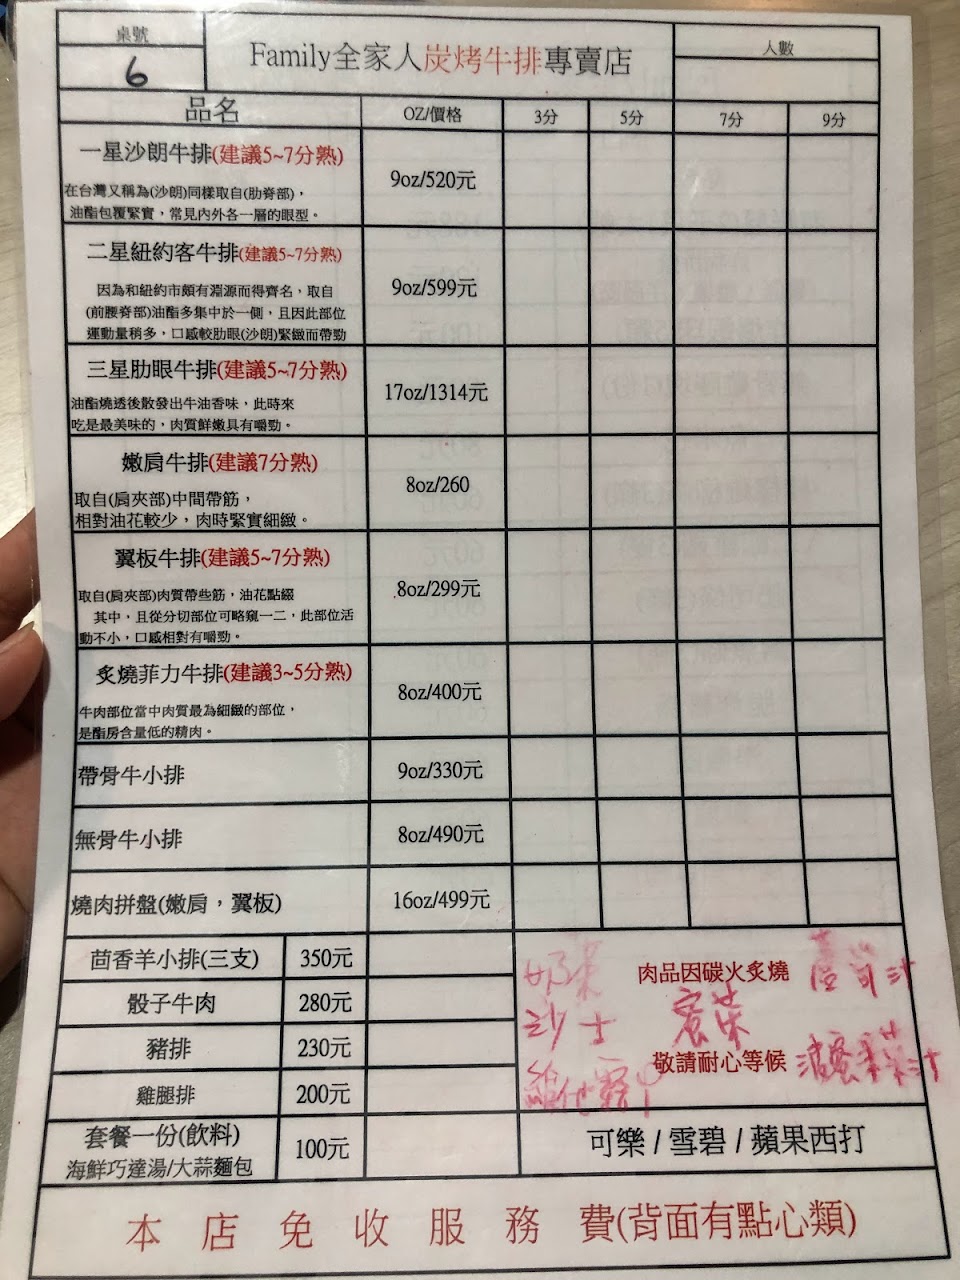 桌號
6
Family全家人炭烤牛排專賣店
人數
品名 OZ/價格 3分 5分 7分 9分
一星沙朗牛排(建議5~7分熟)
在台灣又稱為(沙朗)同樣取自(肋脊部)，
油酯包覆緊實，常見內外各一層的眼型。
9oz/520元
二星紐約客牛排(建議5~7分熟)
因為和紐約市頗有淵源而得齊名，取自
(前腰脊部)油酯多集中於一側，且因此部位
運動量稍多，口感較肋眼(沙朗)緊緻而帶勁
9oz/599元
三星肋眼牛排(建議5~7分熟)
油酯燒透後散發出牛油香味，此時來
吃是最美味的，肉質鮮嫩具有嚼勁。
17oz/1314元
嫩肩牛排(建議7分熟)
取自(肩夾部)中間帶筋，
相對油花較少，肉時緊實細緻。
8oz/260
翼板牛排(建議5~7分熟)
取自(肩夾部)肉質帶些筋，油花點綴
其中，且從分切部位可略窺一二，此部位活
動不小，口感相對有嚼勁。
8oz/299元
炙燒菲力牛排(建議3~5分熟)
牛肉部位當中肉質最為細緻的部位，
是酯房含量低的精肉。
8oz/400元
帶骨牛小排 9oz/330元
無骨牛小排 8oz/490元
燒肉拼盤(嫩肩，翼板) 16oz/499元
茴香羊小排(三支) 350元
骰子牛肉 280元
豬排 230元
雞腿排 200元
套餐一份(飲料)
海鮮巧達湯/大蒜麵包
100元
奶茶 肉品因碳火炙燒 蘆筍汁
沙士
敬請耐心等候
可樂 / 雪碧 / 蘋果西打
本店免收服務費(背面有點心類)